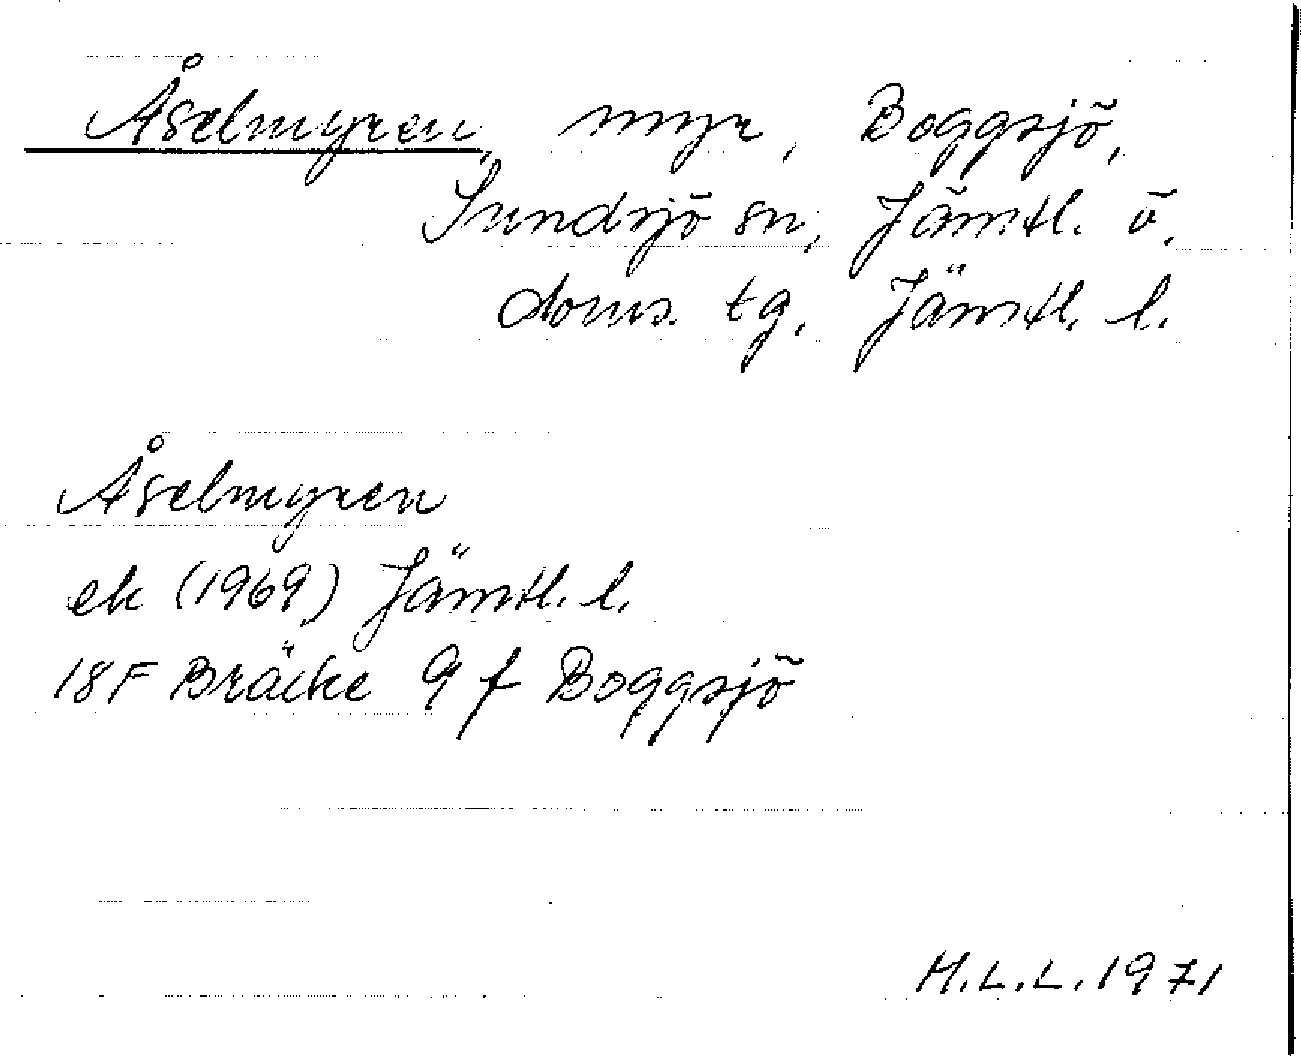 Åselmyren, myr, Boggsjö,
Sundsjö sn, Jämtl. ö.
doms. tg, Jämtl. l.
Åselmyren
ek (1969) Jämtl. l.
18F Bräcke 9 f Boggsjö
M.L.L. 1971